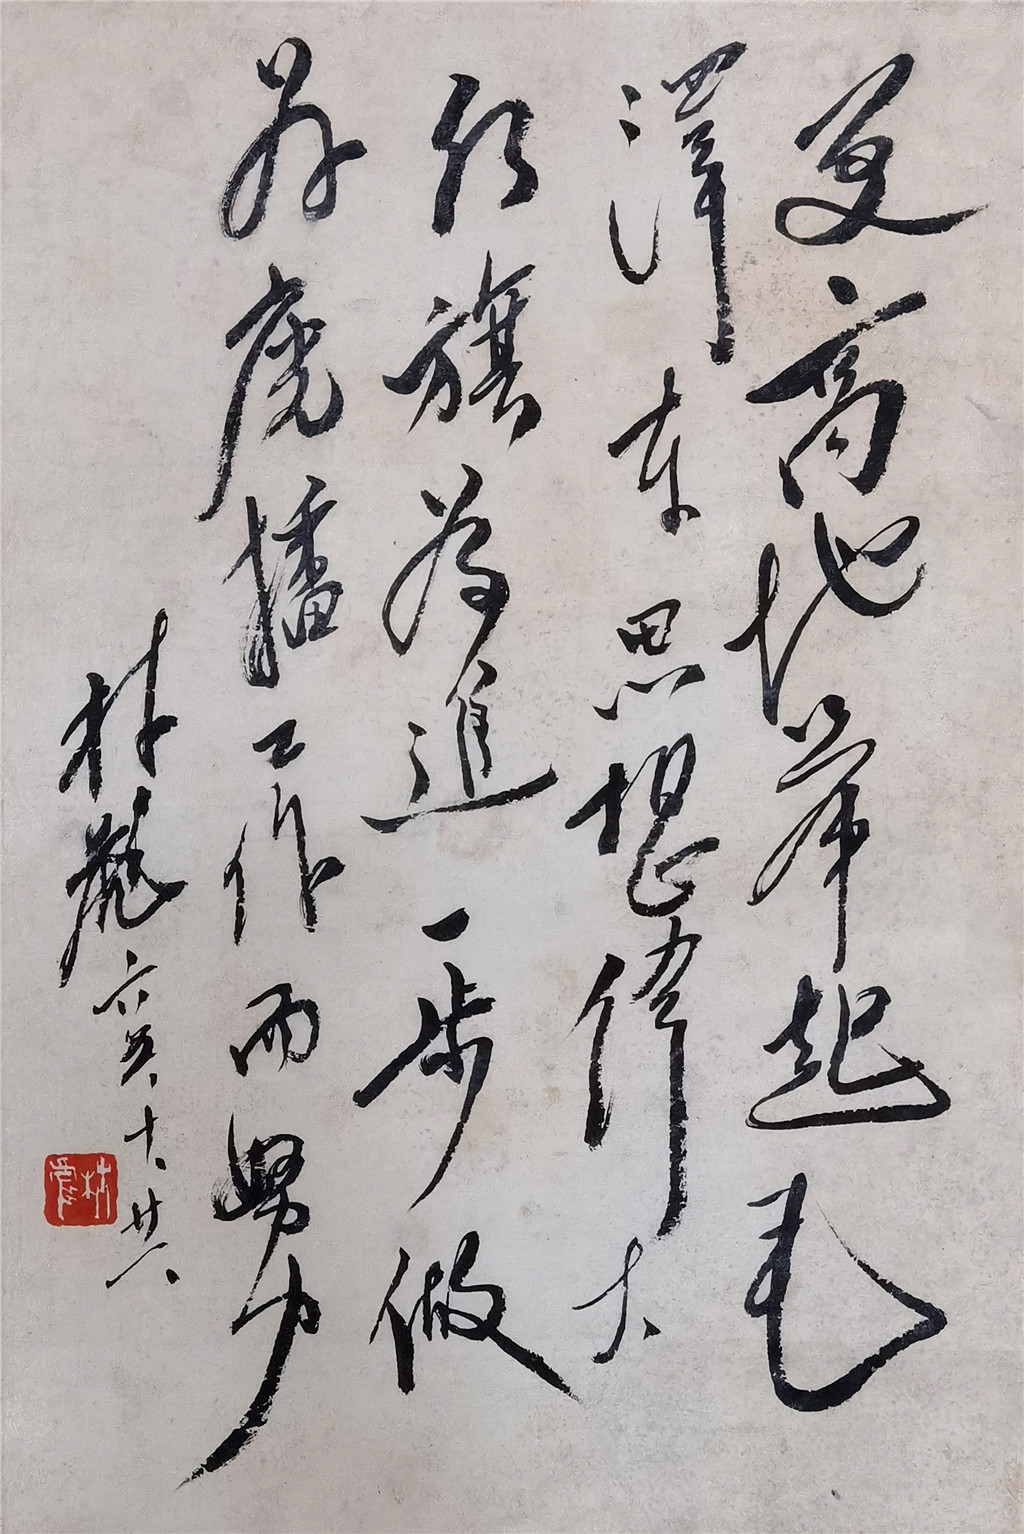 更高地举起毛
澤东思想偉大
红旗为進一步做
好廣播工作而努力
林彪 六五、十、廿八、
林彪